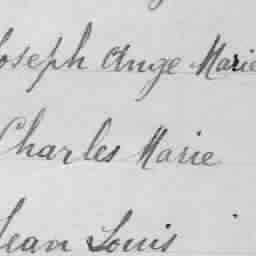 Joseph Ange Marie
Charles Marie
Jean Louis